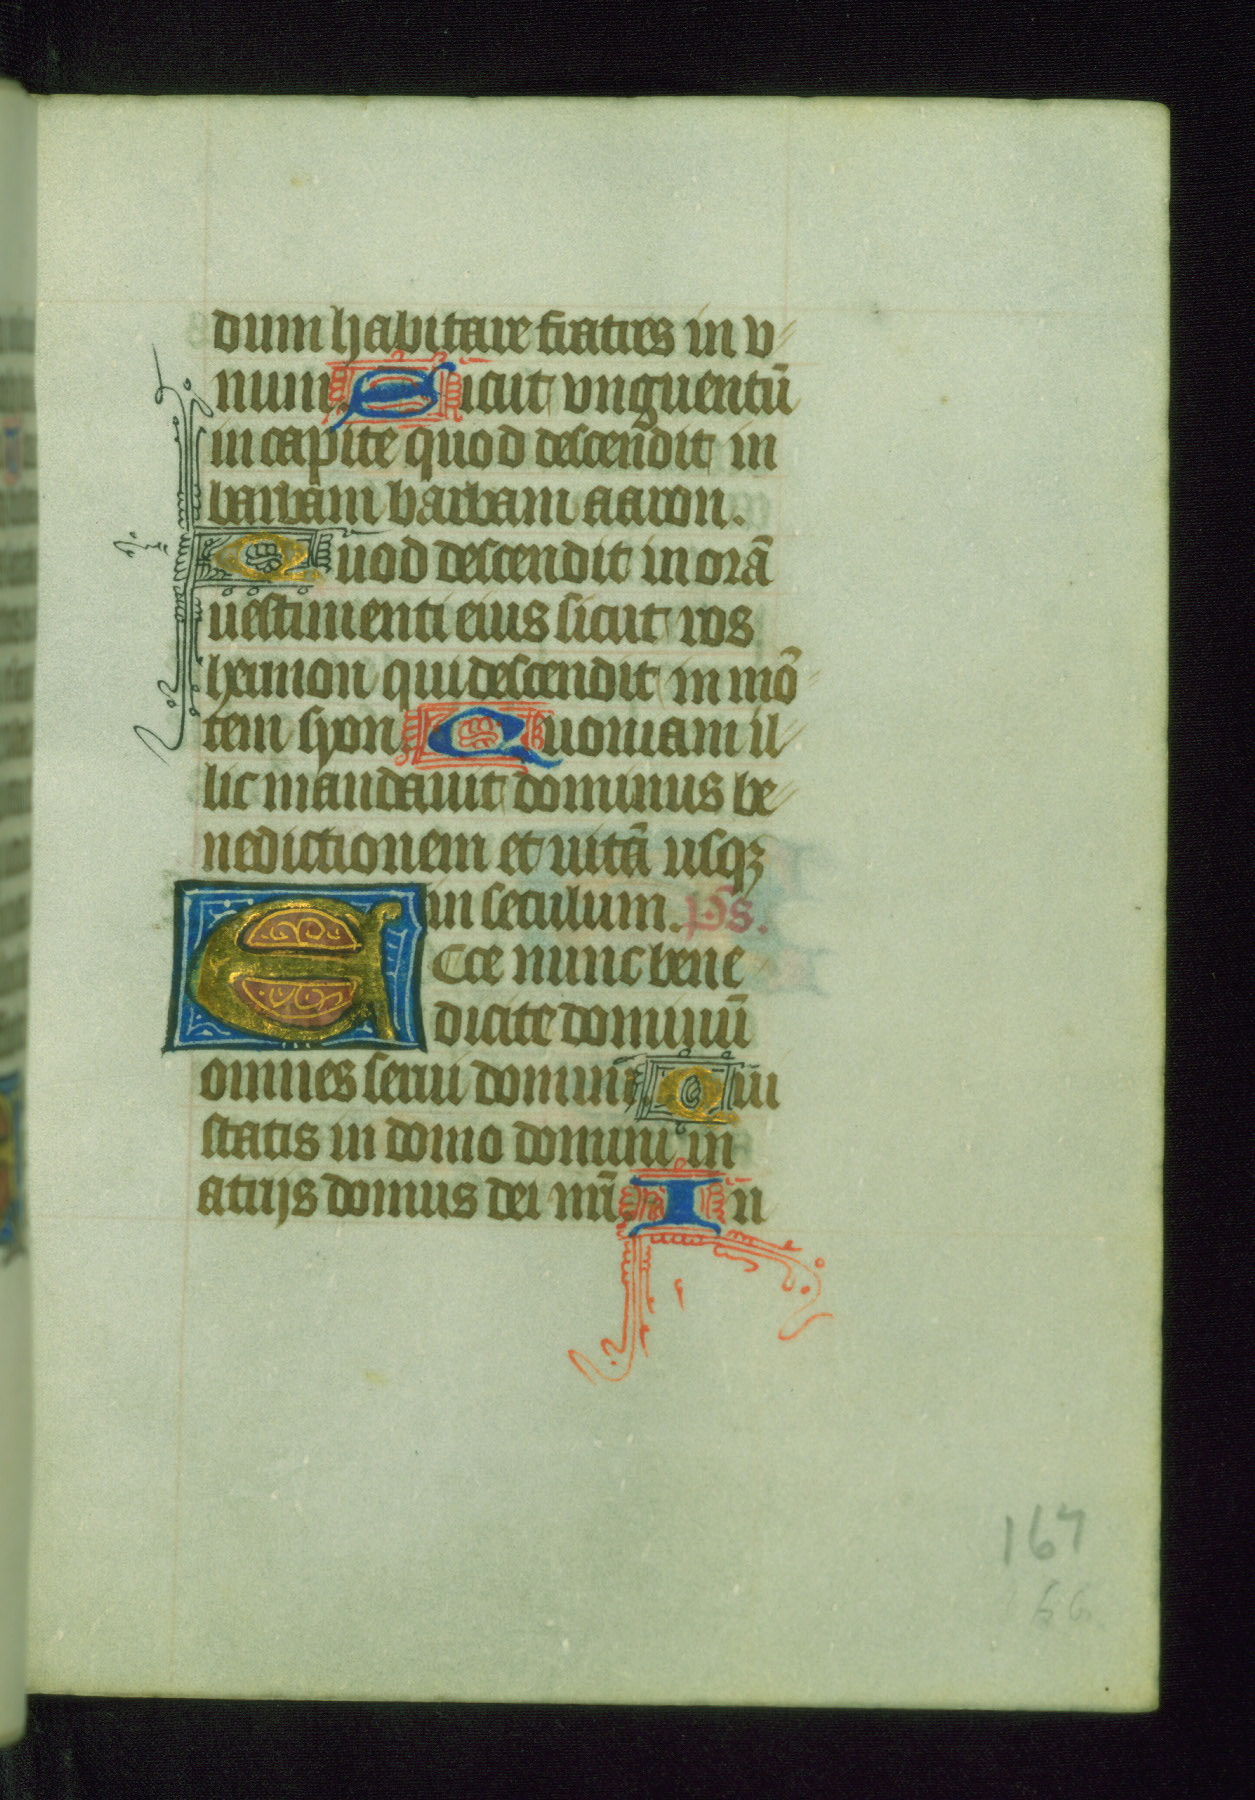 dum habitare fratres in v
num. Sicut vnguentū
in capite quod descendit in
barbam barbam aaron.
Quod descendit in orā
uestimenti eius sicut ros
hermon qui descendit in mō
tem syon. Quoniam il
lic mandauit dominus be
nedictionem et uitā usqꝫ
in seculum. ps.
Ecce nunc bene
dicite dominū
omnes serui domini. Qui
statis in domo domini in
atrijs domus dei nrī. In
167
66